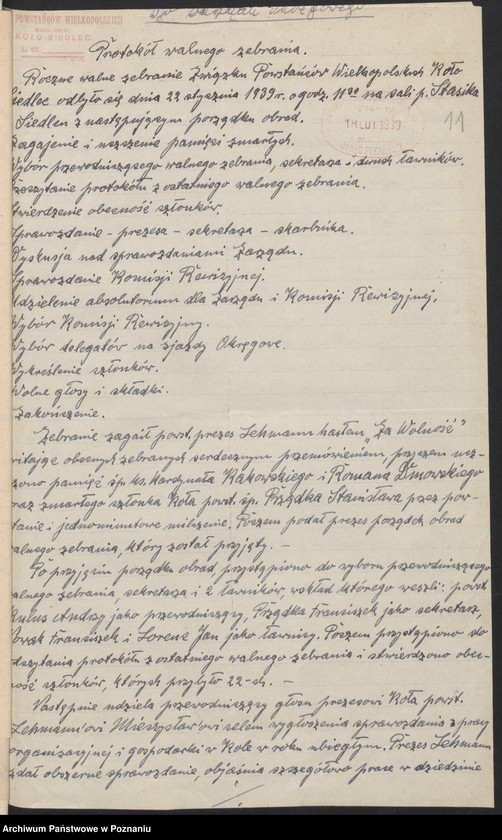 Do Zarządu Okręgowego
POWSTAŃCÓW WIELKOPOLSKICH
KOŁO-SIEDLEC
11
Protokół walnego zebrania.
Roczne walne zebranie Związku Powstańców Wielkopolskich Koło
Siedlec odbyło się dnia 22 stycznia 1939 r. o godz. 11 00 na sali p. Stasika
Siedlec z następującym porządkiem obrad.
Zagajenie i uczczenie pamięci zmarłych.
Wybór przewodniczącego walnego zebrania, sekretarza i dwuch ławników.
Odczytanie protokółu z ostatniego walnego zebrania.
Stwierdzenie obecność członków.
Sprawozdanie - prezesa - sekretarza - skarbnika.
Dyskusja nad sprawozdaniami Zarządu.
Sprawozdanie Komisji Rewizyjnej.
Udzielenie absolutorium dla Zarządu i Komisji Rewizyjnej.
Wybór Komisji Rewizyjny.
Wybór delegatów na zjazdy Okręgowe.
Wykreślenie członków.
Wolne głosy i składki.
Zakończenie.
Zebranie zagaił powst. prezes Lehmann hasłem „Za Wolność"
witając obecnych zebranych serdecznym przemówieniem, przyczem ucz-
czono pamięć śp. ks. Kardynała Kakowskiego i Romana Dmowskiego
oraz zmarłego członka Koła powst. śp. Prządka Stanisława przez pow-
stanie i jednominutowe milczenie. Poczem podał prezes porządek obrad
walnego zebrania, który został przyjęty. —
Po przyjęciu porządku obrad, przystąpiono do wyboru przewodniczącego
walnego zebrania, sekretarza i 2 ławników, wskład którego weszli: powst.
Kulus Andrzej jako przewodniczący, Prządka Franciszek jako sekretarz,
Nowak Franciszek i Lorenz Jan jako ławnicy. Poczem przystąpiono do
odczytania protokółu z ostatniego walnego zebrania i stwierdzono obec-
ność członków, których przybyło 22-ch. —
Następnie udziela przewodniczący głosu prezesowi Koła powst.
Lehmann'owi Mieczysław'owi celem wygłoszenia sprawozdania z pracy
organizacyjnej i gospodarki w Kole w roku ubiegłym. Prezes Lehmann
zdał obszerne sprawozdanie, objaśnia szczegółowo prace w dziedzinie
Archiwum Państwowe w Poznaniu